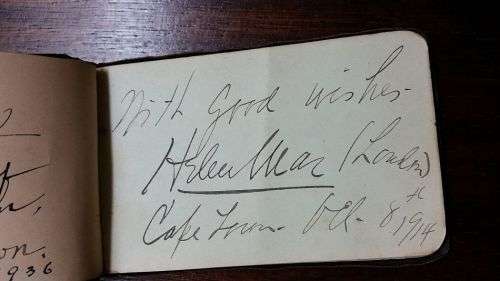 on.
1936
With Good wishes-
Helen Mar (London)
Cape Town- Oct- 8th 1914